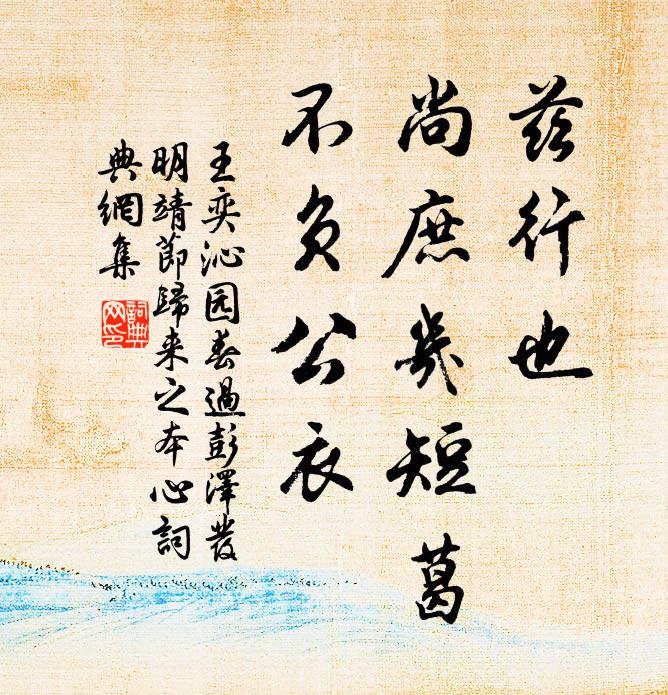 兹行也
尚庶幾短葛
不负公衣
王奕沁园春過彭澤發
明靖節歸来之本心詞
典網集
詞典
网印